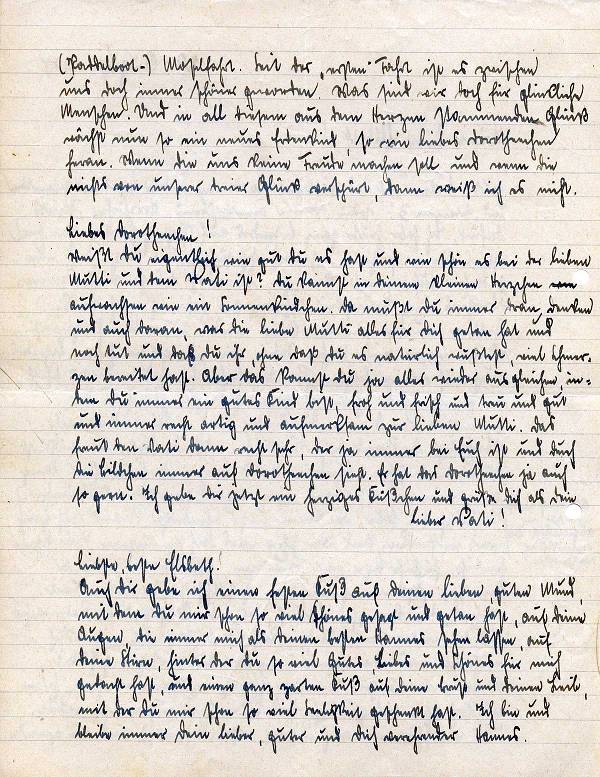 (Paddelboot-) Moselfahrt. Seit der "ersten" Fahrt ist es zwischen
uns doch immer schöner geworden. Was sind wir doch für glückliche
Menschen. Und in all diesem aus dem Herzen stammenden Glück
wächst nun so ein neues Erdenkind, so ein liebes Dorotheechen
heran. Wenn die uns keine Freude machen soll und wenn die
nichts von unserer Glück verspürt, dann weiß ich es nicht.
Liebes Dorotheechen!
Weißt Du eigentlich wie gut Du es hast und wie schön es bei der lieben
Mutti und dem Vati ist? Du kannst in Deinem kleinen Herzchen
aufwachsen wie ein Sonnenkindchen. Da mußt Du immer dran denken
und auch daran, was die liebe Mutti alles für Dich getan hat und
noch tut und daß Du ihr, ohne daß Du es natürlich wußtest, viel Schmer-
zen bereitet hast. Aber das kannst Du ja alles wieder ausgleichen in-
dem Du immer ein gutes Kind bist, froh und frisch und treu und gut
und immer recht artig und aufmerksam zur lieben Mutti. Das
freut den Vati dann recht sehr, der ja immer bei Euch ist und durch
die Bildchen immer auf Dorotheechen sieht. Er hat das Dorotheechen ja auch
so gern. Ich gebe Dir jetzt ein herziges Küßchen und grüße Dich als Dein
lieber Vati!
Liebste, beste Elsbeth!
Auch Dir gebe ich einen festen Kuß auf Deinen lieben, guten Mund,
mit dem Du mir schon so viel Schönes gesagt und getan hast, auf Deine
Augen, die immer mich als Deinen besten Hannes sehen lassen, auf
Deine Stirn, hinter der Du so viel Gutes, Liebes und Schönes für mich
gedacht hast, und einen ganz zarten Kuß auf Deine Brust und Deinen Leib,
mit der Du mir schon so viel Seeligkeit geschenkt hast. Ich bin und
bleibe immer Dein lieber, guter und Dich verehrender Hannes.